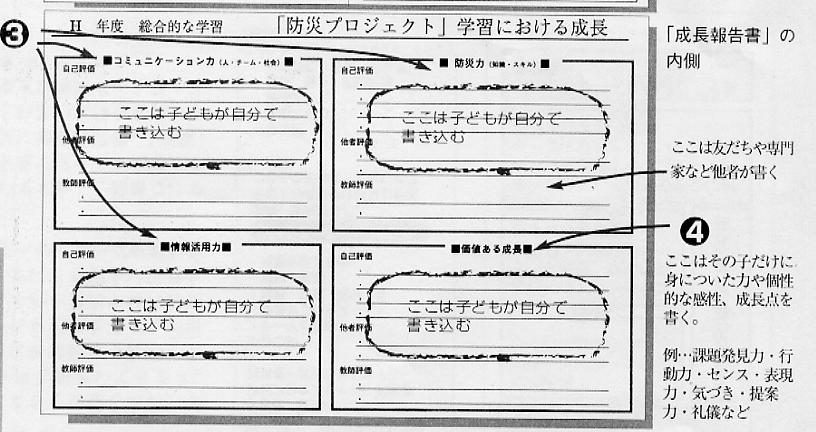 H 年度 総合的な学習 「防災プロジェクト」学習における成長
❸
■コミュニケーション力（人・チーム・社会）■
自己評価
ここは子どもが自分で
書き込む
他者評価
教師評価
■ 防災力（知識・スキル）■
自己評価
ここは子どもが自分で
書き込む
他者評価
教師評価
■情報活用力■
自己評価
ここは子どもが自分で
書き込む
他者評価
教師評価
■価値ある成長■
自己評価
ここは子どもが自分で
書き込む
他者評価
教師評価
「成長報告書」の
内側
ここは友だちや専門
家など他者が書く
❹
ここはその子だけに
身についた力や個性
的な感性、成長点を
書く。
例…課題発見力・行
動力・センス・表現
力・気づき・提案
力・礼儀など